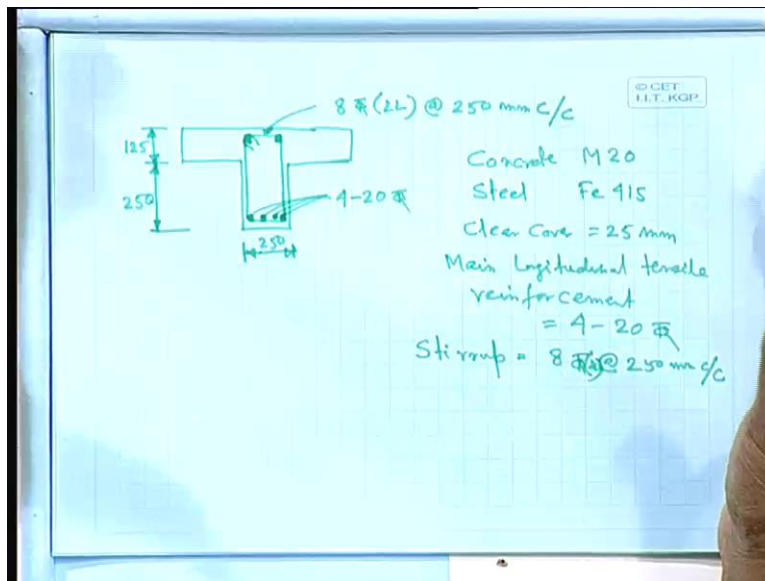 8 Ꞩ (2L) @ 250 mm C/C
© CET
I.I.T. KGP
125
250
4-20
250
Concrete M20
Steel Fe 415
Clear Cover = 25 mm
Main Longitudinal tensile
reinforcement
= 4-20
Stirrup = 8 @ 250 mm C/C